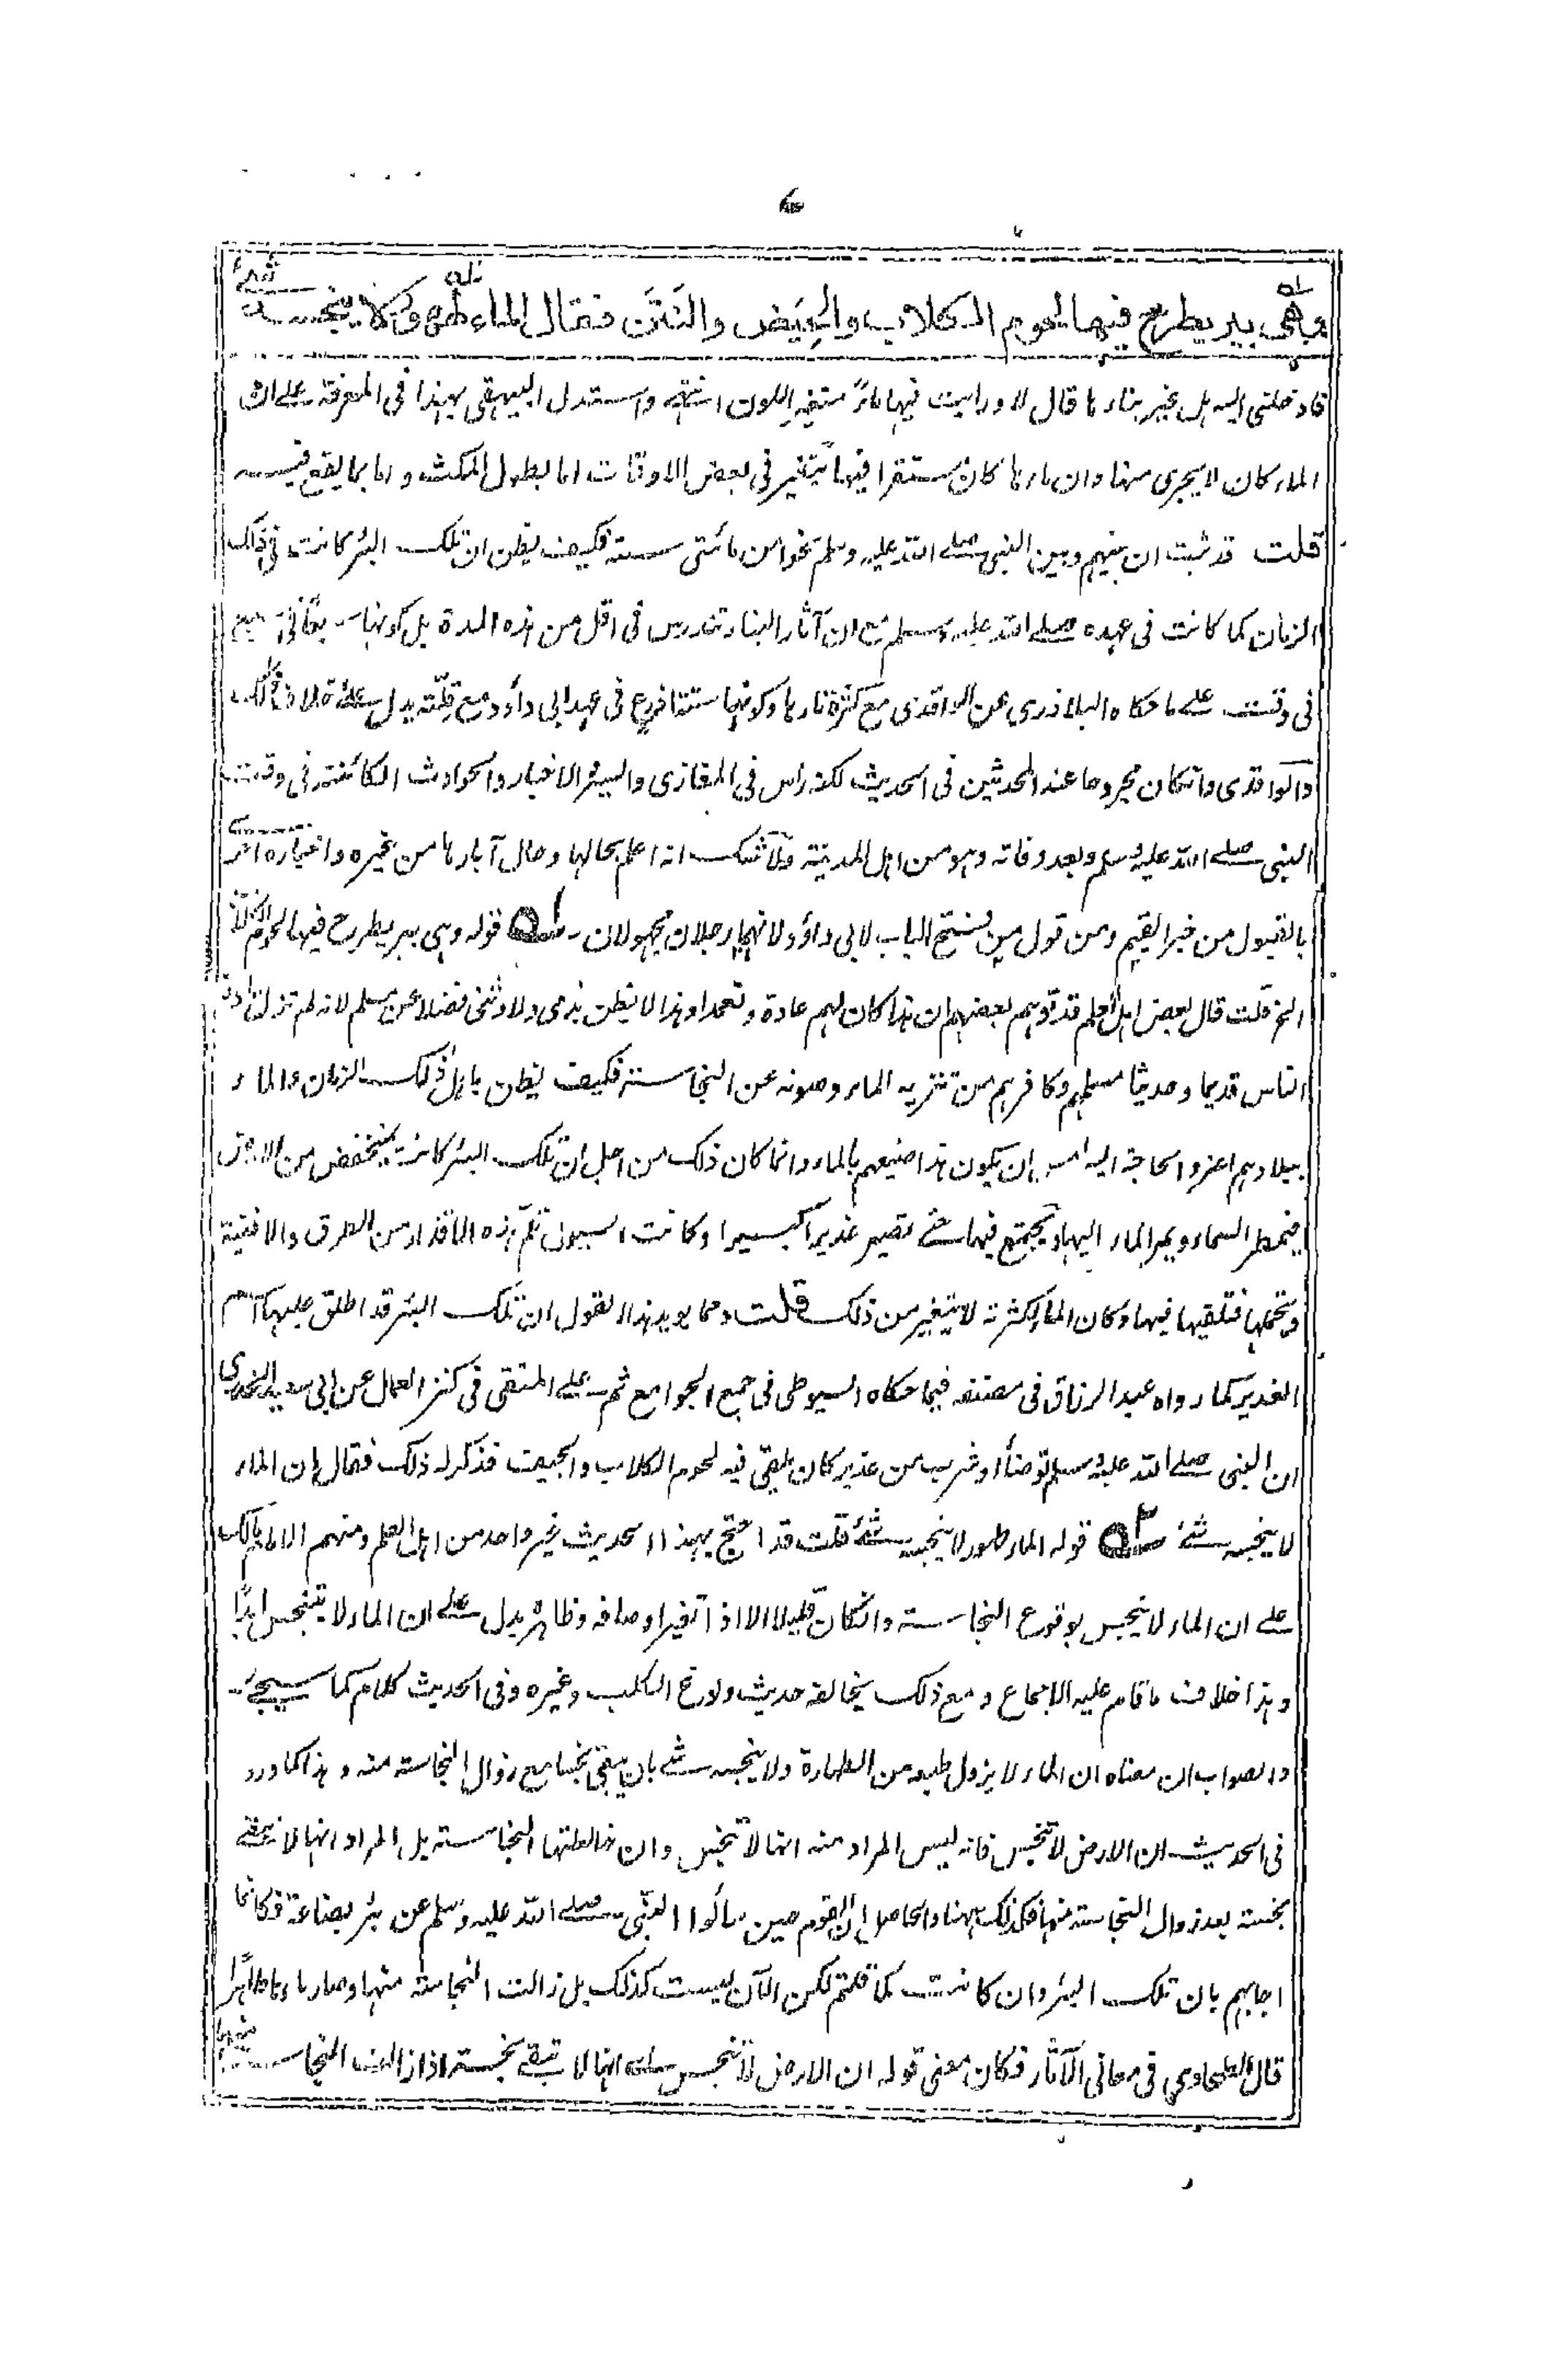 وهى بير يطرح فيها لحوم الكلاب والحِيَض والنَتَن فقال الماء طهور لا ينجسه شئ
فادخلنى اليه هل غير بناءها قال لا ورايت فيها ماءً متغير اللون انتهى واستدل البيهقى بهذا فى المعرفة على ان
الماء كان لا يجرى منها وان ماءها كان مستقرا فيها يتغير فى بعض الاوقات اما بطول المكث و اما بما يقع فيه
قلت قد ثبت ان بينهم وبين النبى صلى الله عليه وسلم نحوا من مائتى سنة فكيف يظن ان تلك البئر كانت فى ذلك
الزمان كما كانت فى عهده صلى الله عليه وسلم مع ان آثار البناء تندرس فى اقل من هذه المدة بل كونها
فى وقت على ما حكاه البلاذرى عن الواقدى مع كثرة ماءها وكونها ستة اذرع فى عهد ابى داؤد مع قلته يدل على
والواقدى وانكان مجروحا عند المحدثين فى الحديث لكنه راس فى المغازى والسير والاخبار والحوادث الكائنة فى وقت
النبى صلى الله عليه وسلم وبعد وفاته وهو من اهل المدينة ولا شك انه اعلم بحالها وحال آبارها من غيره واخباره احرى
بالقبول من خبر القيم ومن قول من فتح الباب لابى داؤد لانهما رجلان مجهولان قوله وهى بير يطرح فيها لحوم الكلاب
الخ قلت قال بعض اهل العلم قد توهم بعضهم ان هذا كان لهم عادة وتعمدا وهذا لا يظن بذمى ولا وثنى فضلا عن مسلم لانه لم تزل عادة
الناس قديما وحديثا مسلمهم وكافرهم من تنزيه الماء وصونه عن النجاسة فكيف يظن باهل ذلك الزمان والماء
ببلادهم اعز والحاجة اليه امس ان يكون هذا صنيعهم بالماء وانما كان ذلك من اجل ان تلك البئر كانت بمنخفض من الارض
فيمطر السماء ويمر الماء اليها ويجتمع فيها حتى تصير غديرا كبيرا وكانت السيول تلم هذه الاقذار من الطرق والافنية
وتحملها فتلقيها فيها وكان الماء لكثرته لا يتغير من ذلك قلت ومما يويد هذا القول ان تلك البئر قد اطلق عليها اسم
الغدير كما رواه عبد الرزاق فى مصنفه فيما حكاه السيوطى فى جمع الجوامع ثم على المتقى فى كنز العمال عن ابى سعيد الخدرى
ان النبى صلى الله عليه وسلم توضأ او شرب من غدير كان يلقى فيه لحوم الكلاب والجيف فذكر له ذلك فقال ان الماء
لا ينجسه شئ قوله الماء طهور لا ينجسه شئ قلت قد احتج بهذا الحديث غير واحد من اهل العلم ومنهم الامام مالك
على ان الماء لا ينجس بوقوع النجاسة وانكان قليلا الا اذا تغير اوصافه وظاهره يدل على ان الماء لا يتنجس ابدًا
وهذا خلاف ما قام عليه الاجماع ومع ذلك يخالفه حديث ولوغ الكلب وغيره وفى الحديث كلام كما سيجئ
والصواب ان معناه ان الماء لا يزول طبعه من الطهارة ولا ينجسه شئ بان يبقى نجسا مع زوال النجاسة منه وهذا كما ورد
فى الحديث ان الارض لا تنجس فانه ليس المراد منه انها لا تنجس وان خالطتها النجاسة بل المراد انها لا تبقى
نجسة بعد زوال النجاسة منها فكذلك ههنا والحاصل ان القوم حين سألوا النبى صلى الله عليه وسلم عن بئر بضاعة فكانما
اجابهم بان تلك البئر وان كانت كما قلتم لكن الآن ليست كذلك بل زالت النجاسة منها وصار ماءها طاهرًا
قال الطحاوي فى معانى الآثار فكان معنى قوله ان الارض لا تنجس اى انها لا تبقى نجسة اذا زالت النجاسة منها